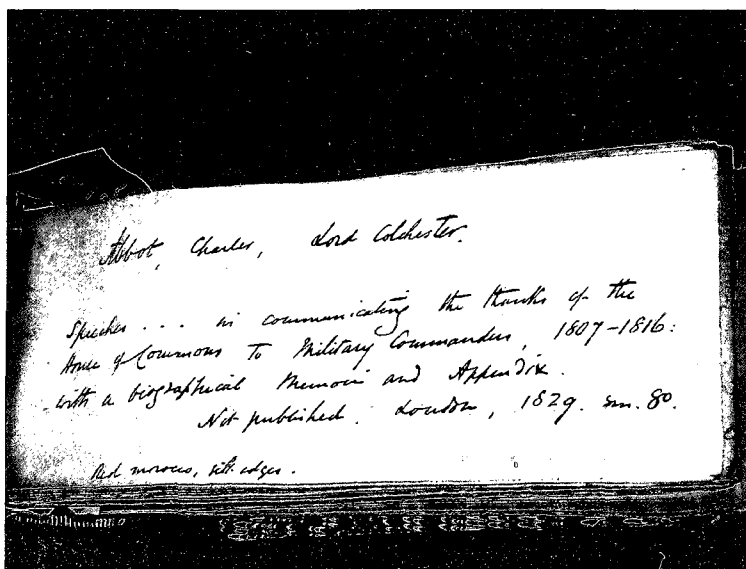 Abbot, Charles, Lord Colchester.
Speeches . . . in communicating the thanks of the
House of Commons to Military Commanders, 1807-1816:
with a biographical Memoir and Appendix.
Not published. London, 1829. sm. 8o.
Red morocco, gilt edges.